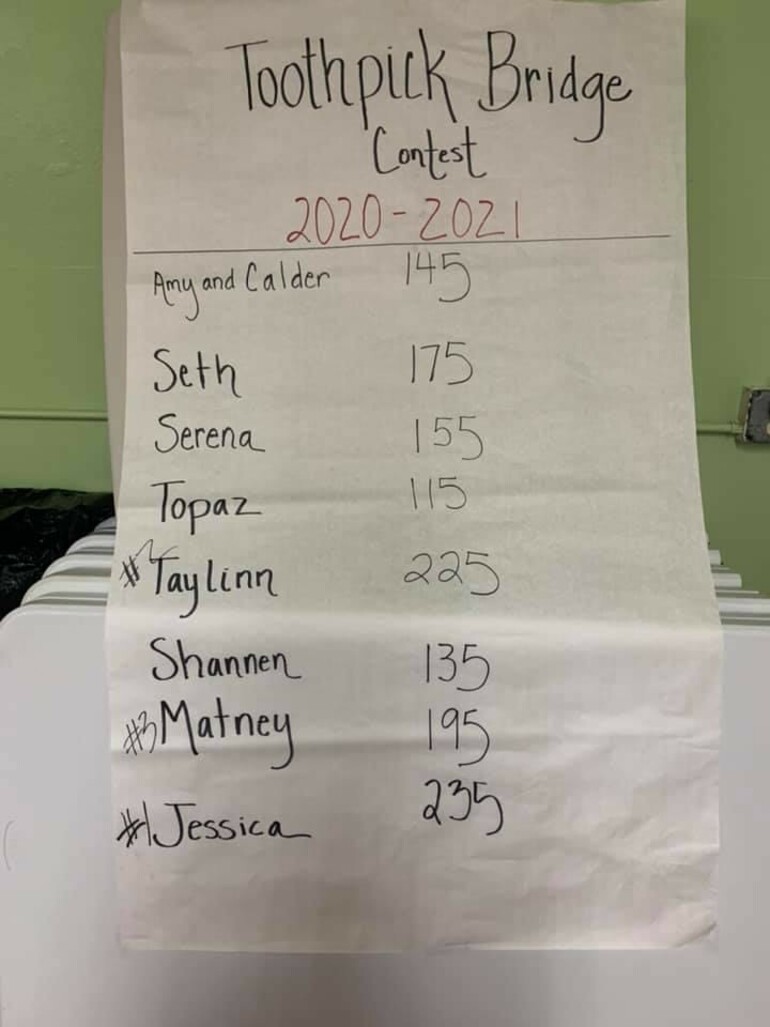 Toothpick Bridge
Contest
2020-2021
Amy and Calder 145
Seth 175
Serena 155
Topaz 115
#2 Taylinn 225
Shannen 135
#3 Matney 195
#1 Jessica 235